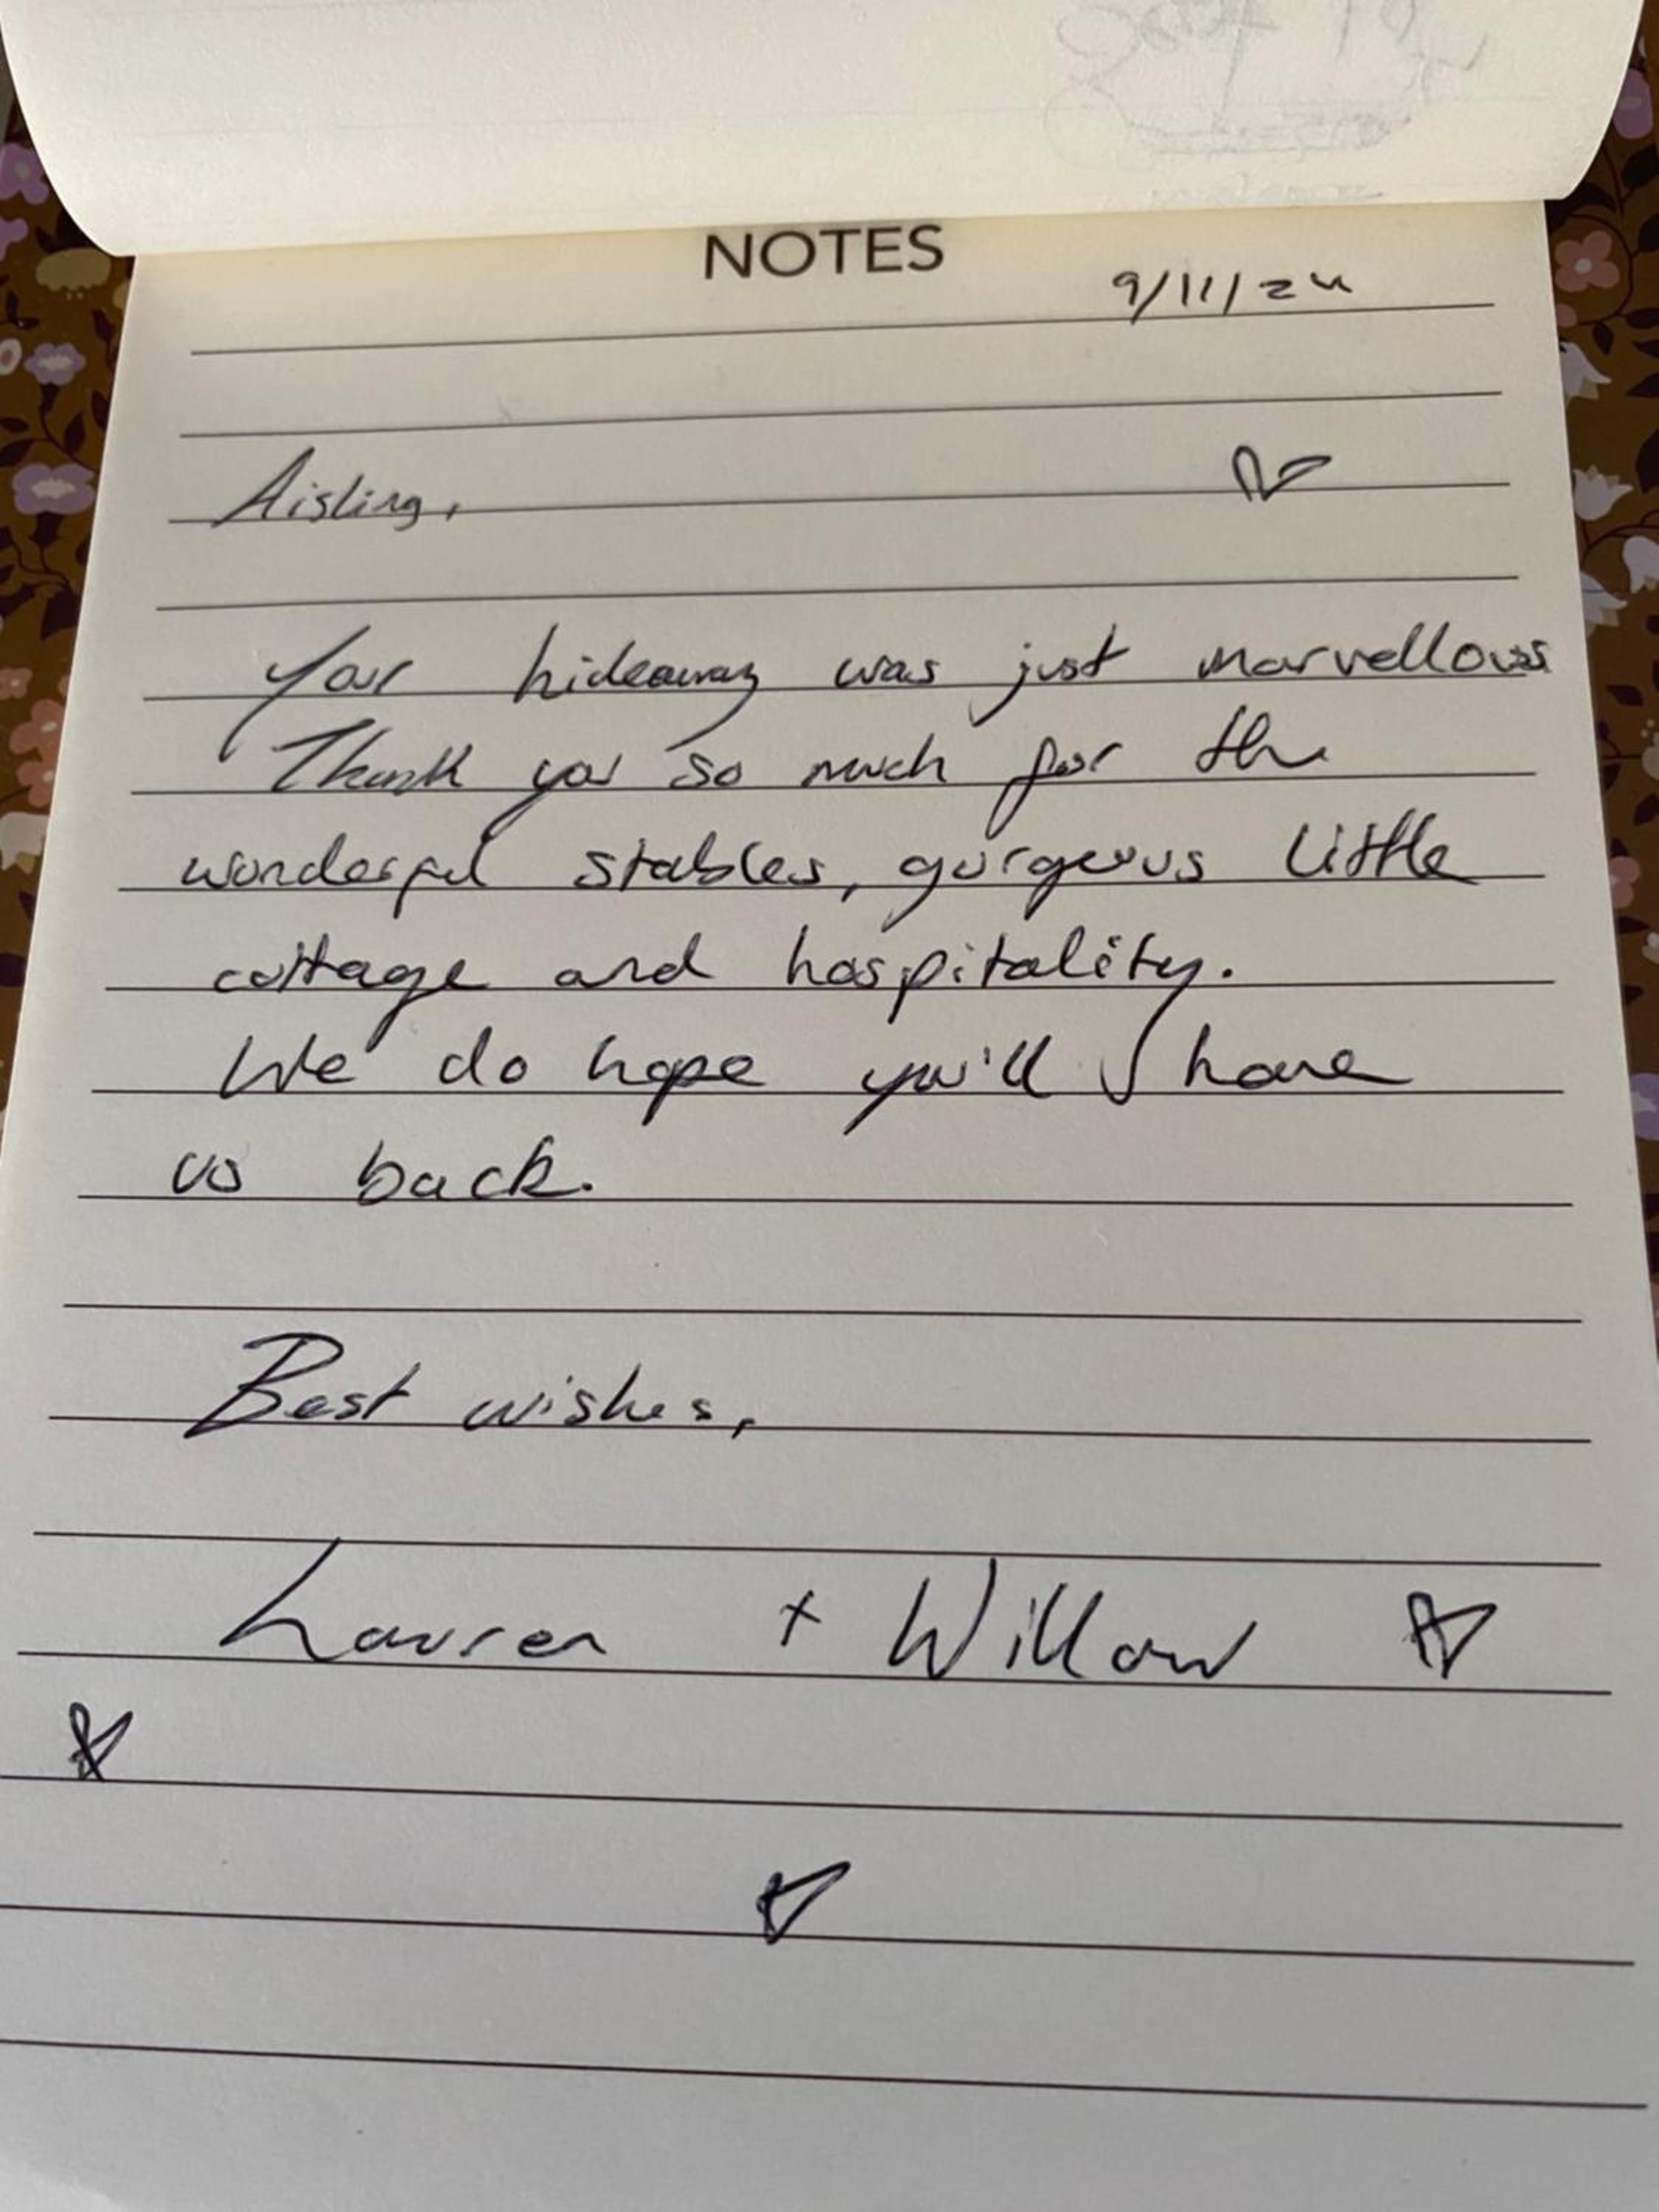 NOTES
9/11/24
Aisling,
Your hideaway was just marvellous
Thank you so much for the
wonderful stables, gorgeous little
cottage and hospitality.
We do hope you'll have
us back.
Best wishes,
Lauren + Willow